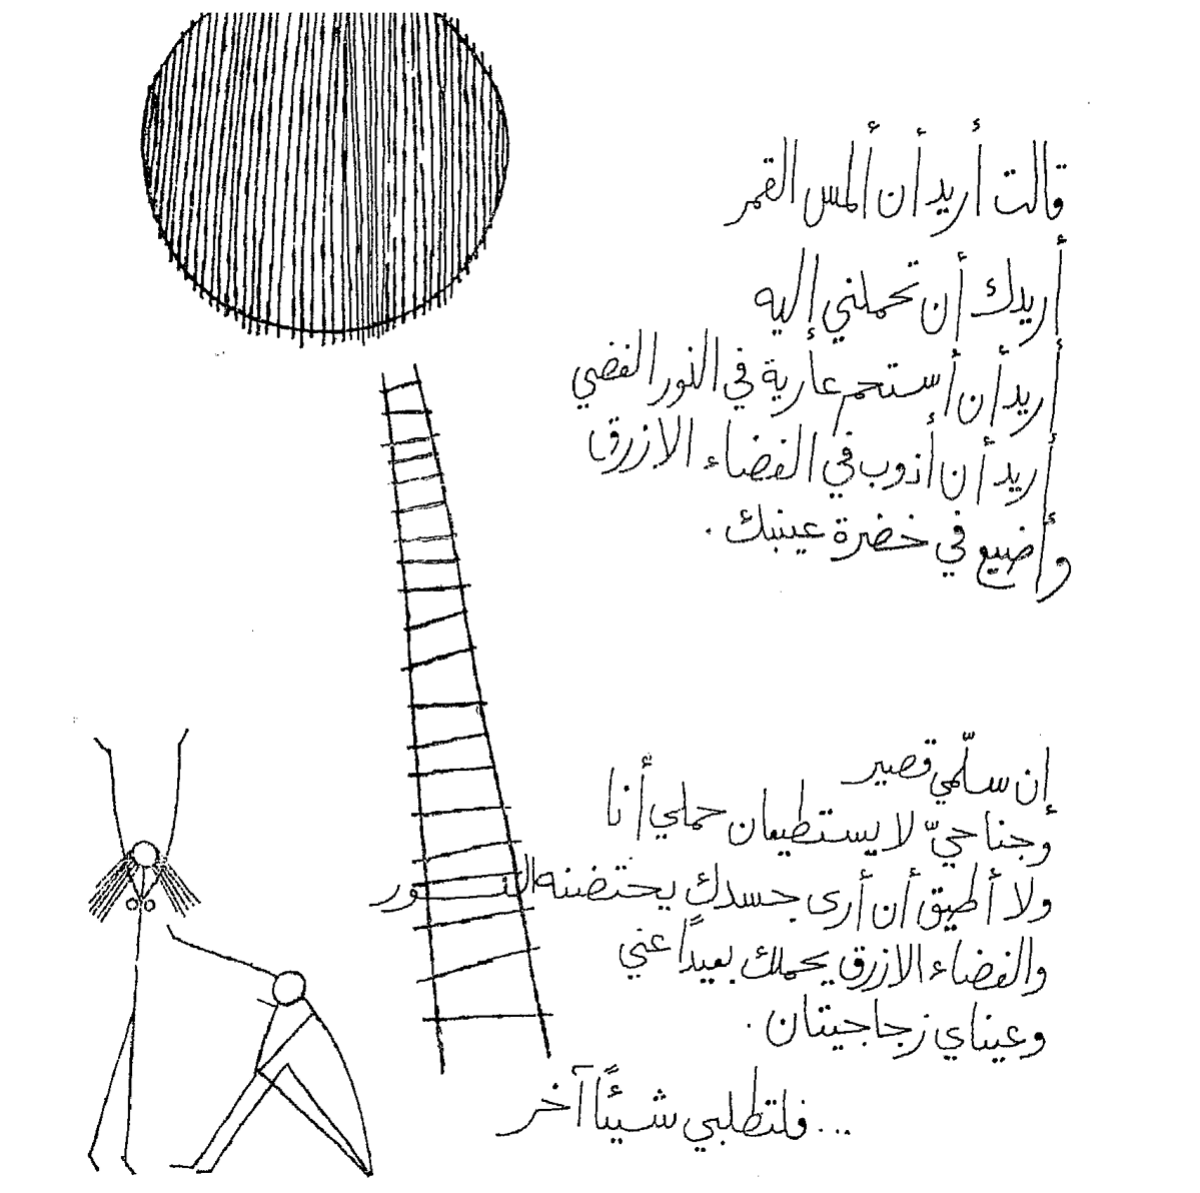 قالت أريد أن ألمس القمر
أريدك أن تحملني إليه
أريد أن أستحم عارية في النور الفضي
أريد أن أذوب في الفضاء الازرق
وأضيع في خضرة عينيك .
إن سلّمي قصير
وجناحيّ لا يستطيعان حملي أنا
ولا أطيق أن أرى جسدك يحتضنه النـــور
والفضاء الازرق يحملك بعيداً عني
وعيناي زجاجيتان .
... فلتطلبي شيئاً آخر